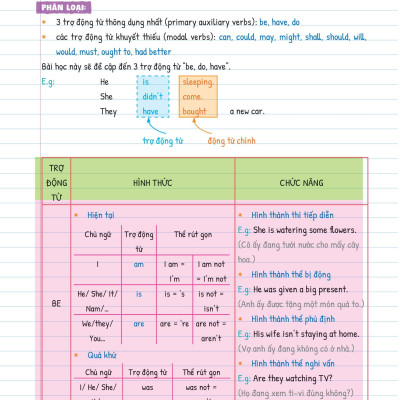 PHÂN LOẠI:
3 trợ động từ thông dụng nhất (primary auxiliary verbs): be, have, do
các trợ động từ khuyết thiếu (modal verbs): can, could, may, might, shall, should, will,
would, must, ought to, had better
Bài học này sẽ đề cập đến 3 trợ động từ "be, do, have".
E.g: He is sleeping.
She didn't come.
They have bought a new car.
trợ động từ động từ chính
TRỢ ĐỘNG TỪ
HÌNH THỨC
CHỨC NĂNG
BE
Hiện tại
Chủ ngữ Trợ động từ Thể rút gọn
I am I am = I'm I am not = I'm not
He/ She/ It/ Nam/... is is = 's is not = isn't
We/they/ You... are are = 're are not = aren't
Quá khứ
Chủ ngữ Trợ động từ Thể rút gọn
I/ He/ She/ was was not =
Hình thành thì tiếp diễn
E.g: She is watering some flowers.
(Cô ấy đang tưới nước cho mấy cây
hoa.)
Hình thành thể bị động
E.g: He was given a big present.
(Anh ấy được tặng một món quà to.)
Hình thành thể phủ định
E.g: His wife isn't staying at home.
(Vợ anh ấy đang không có ở nhà.)
Hình thành thể nghi vấn
E.g: Are they watching TV?
(Họ đang xem ti-vi đúng không?)